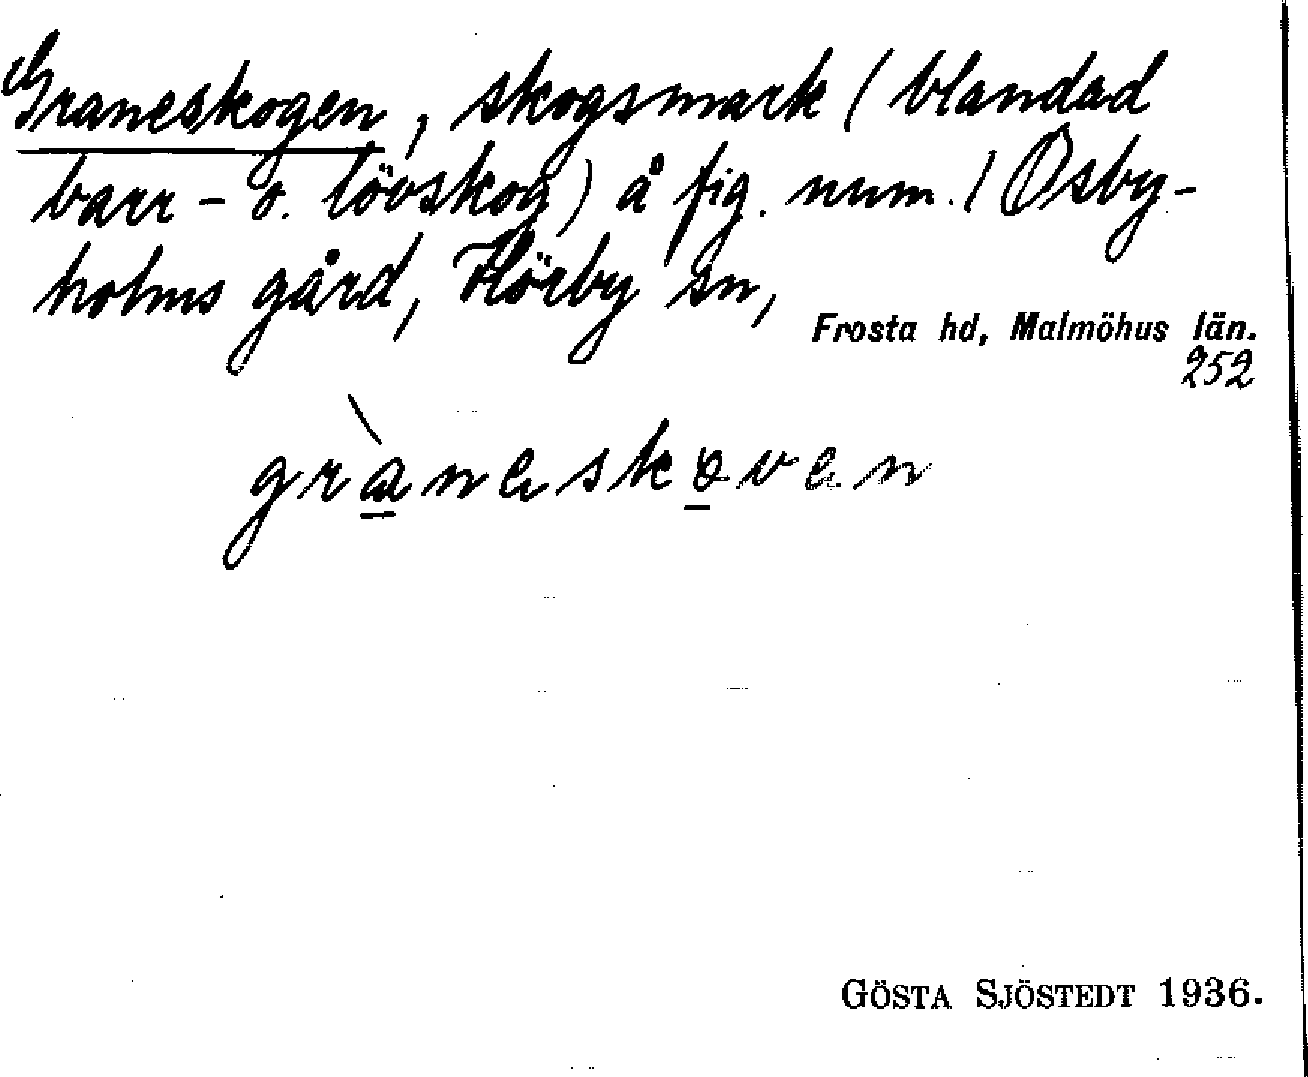 Graneskogen, skogsmark (blandad
barr- o. lövskog) å fig. num. 1 Osby-
holms gård, Hörby sn,
Frosta hd, Malmöhus län.
252
gràneskoven
GÖSTA SJÖSTEDT 1936.